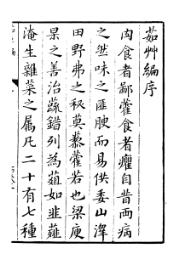 茹艸編序
肉食者鄙藿食者癯自昔両病
之然味之匪腴而易供委山澤
田野弗之秘莫藜藿若也梁庾
杲之善治蔬錯列為葅如韭薤
淹生雜菜之属凡二十有七種